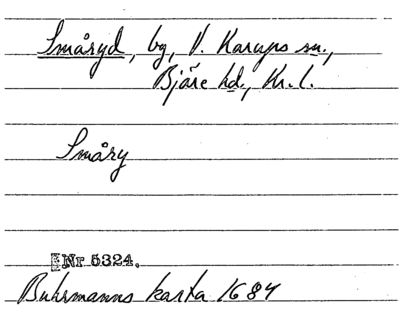 Småryd, by, V. Karups sn.,
Bjäre hd., Kr. l.
Småry
Nr 5324.
Buhrmanns karta 1684